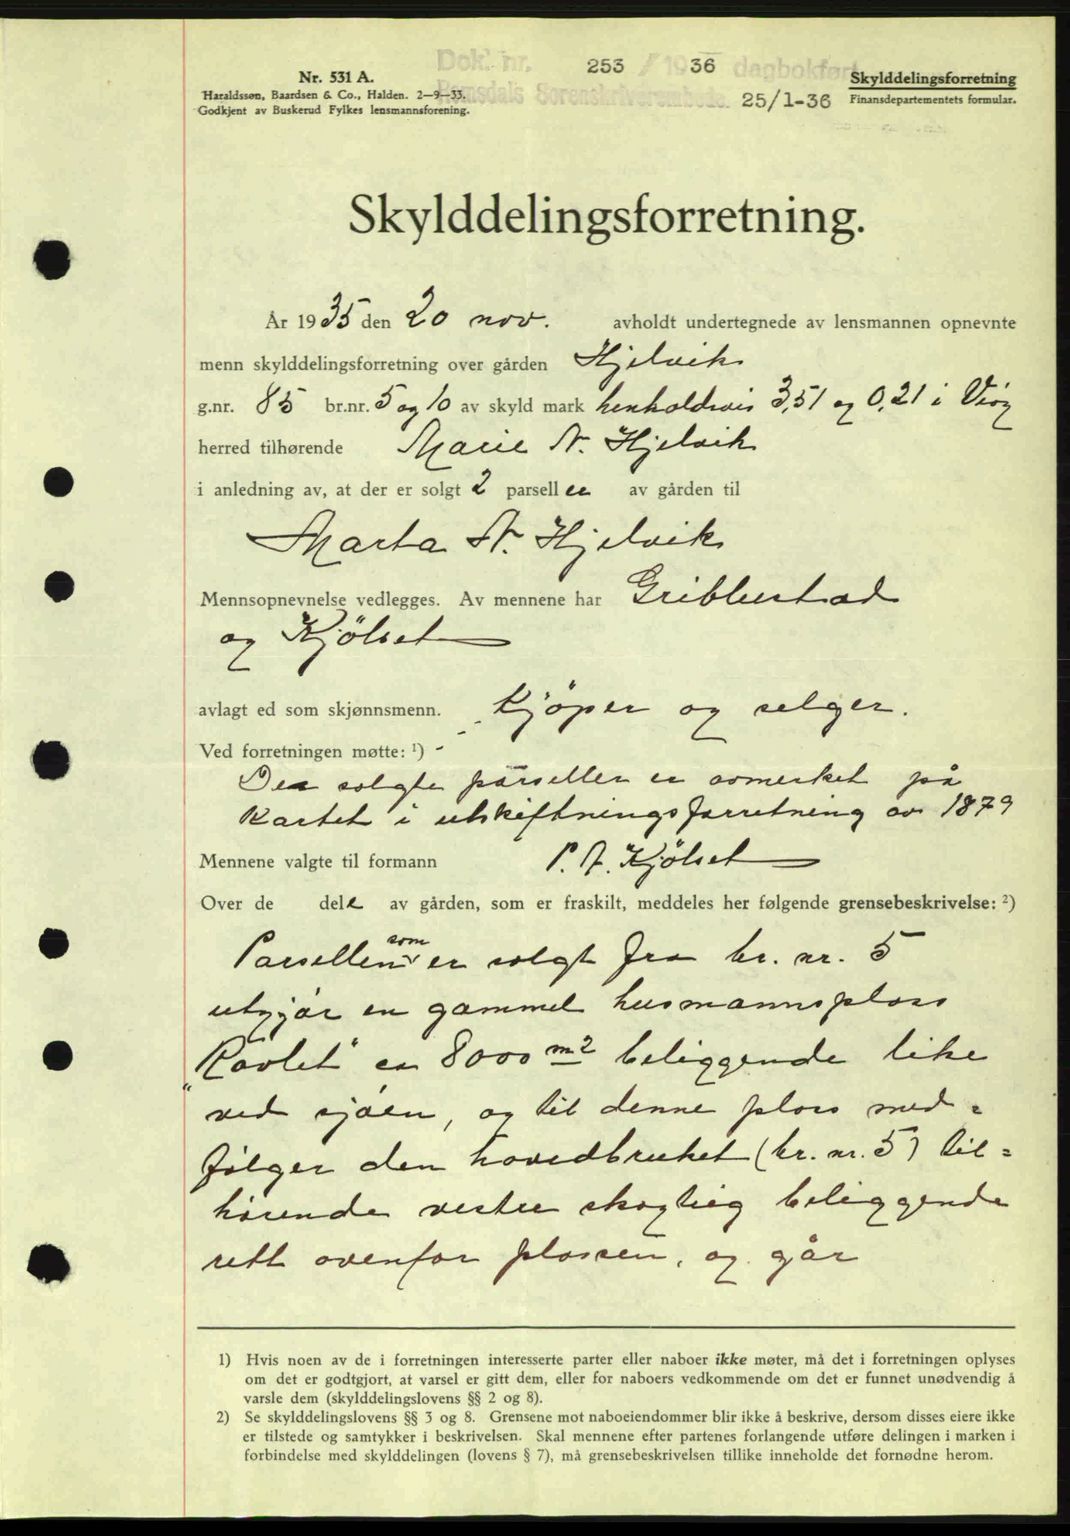 Dok. nr. 253 / 1936 dagbokført
Romsdals Sorenskriverembede. 25/1-36
Nr. 531 A.
Haraldssøn, Baardsen & Co., Halden. 2—9—33.
Godkjent av Buskerud Fylkes lensmannsforening.
Skylddelingsforretning
Finansdepartementets formular.
Skylddelingsforretning.
År 1935 den 20 nov. avholdt undertegnede av lensmannen opnevnte
menn skylddelingsforretning over gården Hjelvik
g.nr. 85 br.nr. 5 og 10 av skyld mark henholdsvis 3,51 og 0,21 i Vøy
herred tilhørende Marie N. Hjelvik
i anledning av, at der er solgt 2 parseller av gården til
Marta N. Hjelvik
Mennsopnevnelse vedlegges. Av mennene har Gribbestad
og Kjölset
avlagt ed som skjønnsmenn.
Ved forretningen møtte: ¹) - - - Kjöper og selger.
De solgte parseller er avmerket på
Kartet i utskiftningsforretning av 1879
Mennene valgte til formann P. A. Kjölset
Over de dele av gården, som er fraskilt, meddeles her følgende grensebeskrivelse: ²)
Parsellen som er solgt fra br. nr. 5
utgjør en gammel husmannsplass
"Ravlet" ca 8000 m2 beliggende like
ved sjøen, og til denne plass med=
følger den hovedbruket (br. nr. 5) til=
hørende vestre skogteig beliggende
rett ovenfor plassen, og går
1) Hvis noen av de i forretningen interesserte parter eller naboer ikke møter, må det i forretningen oplyses
om det er godtgjort, at varsel er gitt dem, eller for naboers vedkommende om det er funnet unødvendig å
varsle dem (skylddelingslovens §§ 2 og 8).
2) Se skylddelingslovens §§ 3 og 8. Grensene mot naboeiendommer blir ikke å beskrive, dersom disses eiere ikke
er tilstede og samtykker i beskrivelsen. Skal mennene efter partenes forlangende utføre delingen i marken i
forbindelse med skylddelingen (lovens § 7), må grensebeskrivelsen tillike inneholde det fornødne herom.